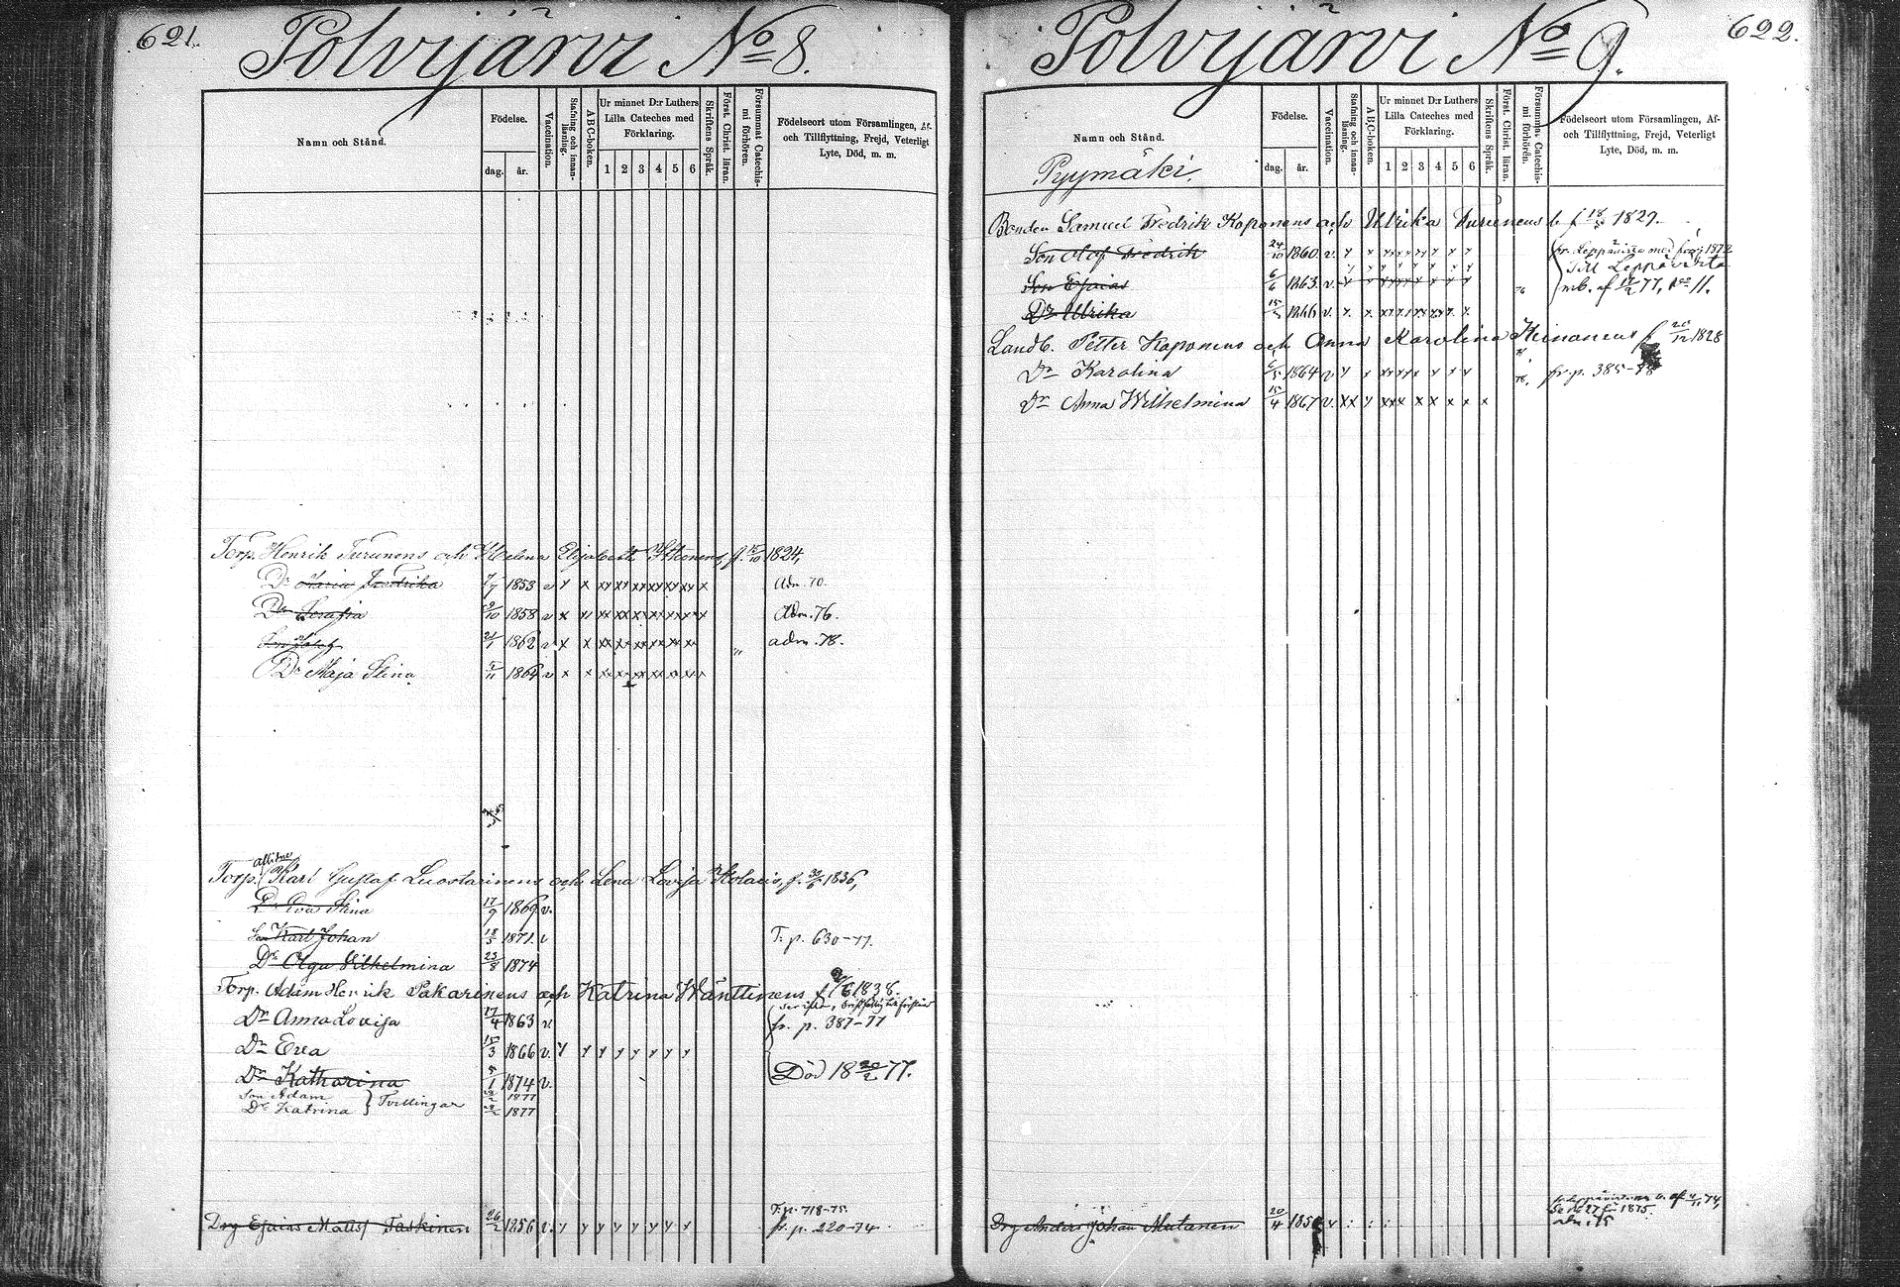 621.
Polvijärvi No 8.
Namn och Stånd.
Födelse.
dag.
år.
Vaccination.
Stafning och innan-läsning.
A B C-boken.
Ur minnet D:r Luthers
Lilla Cateches med
Förklaring.
1 2 3 4 5 6
Skriftens Språk.
Först. Christ. läran.
Försummat Catechis-mi förhören.
Födelseort utom Församlingen, Af-
och Tillflyttning, Frejd, Veterligt
Lyte, Död, m. m.
Torp. Henrik Turunens och Helena Elisabeth f. 1824,
Dr Maria Fredrika 1853 v Adm. 70.
Dr Serafia 1858 v Adm. 76.
Son 1862 v adm. 78.
Dr Maja Stina 1864 v
Torp. Karl Gustaf Luostarinens och Lena Lovisa f. 1836,
Dr Eva Stina 17/9 1869 v.
Son Karl Johan 18/5 1871 v T. p. 630-77.
Dr Olga Wilhelmina 23/8 1874
Torp. Adam Henrik Pakarinens och Katrina Wänttinens f. 1838.
Dr Anna Lovisa 17/4 1863 v fr. p. 387-77
Dr Eva 15/3 1866 v.
Dr Katharina 5/1 1874 v. Död 18 20/2 77.
Son Adam 1877
Dr Katrina } Tvillingar 1877
T. p. 718-75.
Drg Esaias Matts Taskinen 26/2 1856 v. fr. p. 220-74
622.
Polvijärvi No 9.
Namn och Stånd.
Pyymäki.
Födelse.
dag.
år.
Vaccination.
Stafning och innan-läsning.
A B C-boken.
Ur minnet D:r Luthers
Lilla Cateches med
Förklaring.
1 2 3 4 5 6
Skriftens Språk.
Först. Christ. läran.
Försumma. Catechis-mi förhören.
Födelseort utom Församlingen, Af-
och Tillflyttning, Frejd, Veterligt
Lyte, Död, m. m.
Bonden Samuel Fredrik Koponens och Ulrika Turunens b. f. 1829.
Son Olof Fredrik 24/10 1860 v. fr. Leppävirta med 1872
Till Leppävirta
Son Esaias 6/6 1863 v. mb. af 77, No 11.
Dr Ulrika 1866 v.
Landb. Petter Koponens och Anna Karolina Heinonens f. 1828
Dr Karolina 1864 v fr. p. 385-78
Dr Anna Wilhelmina 15/4 1867 v.
Drg Anders Johan Mutanen 20/4 185